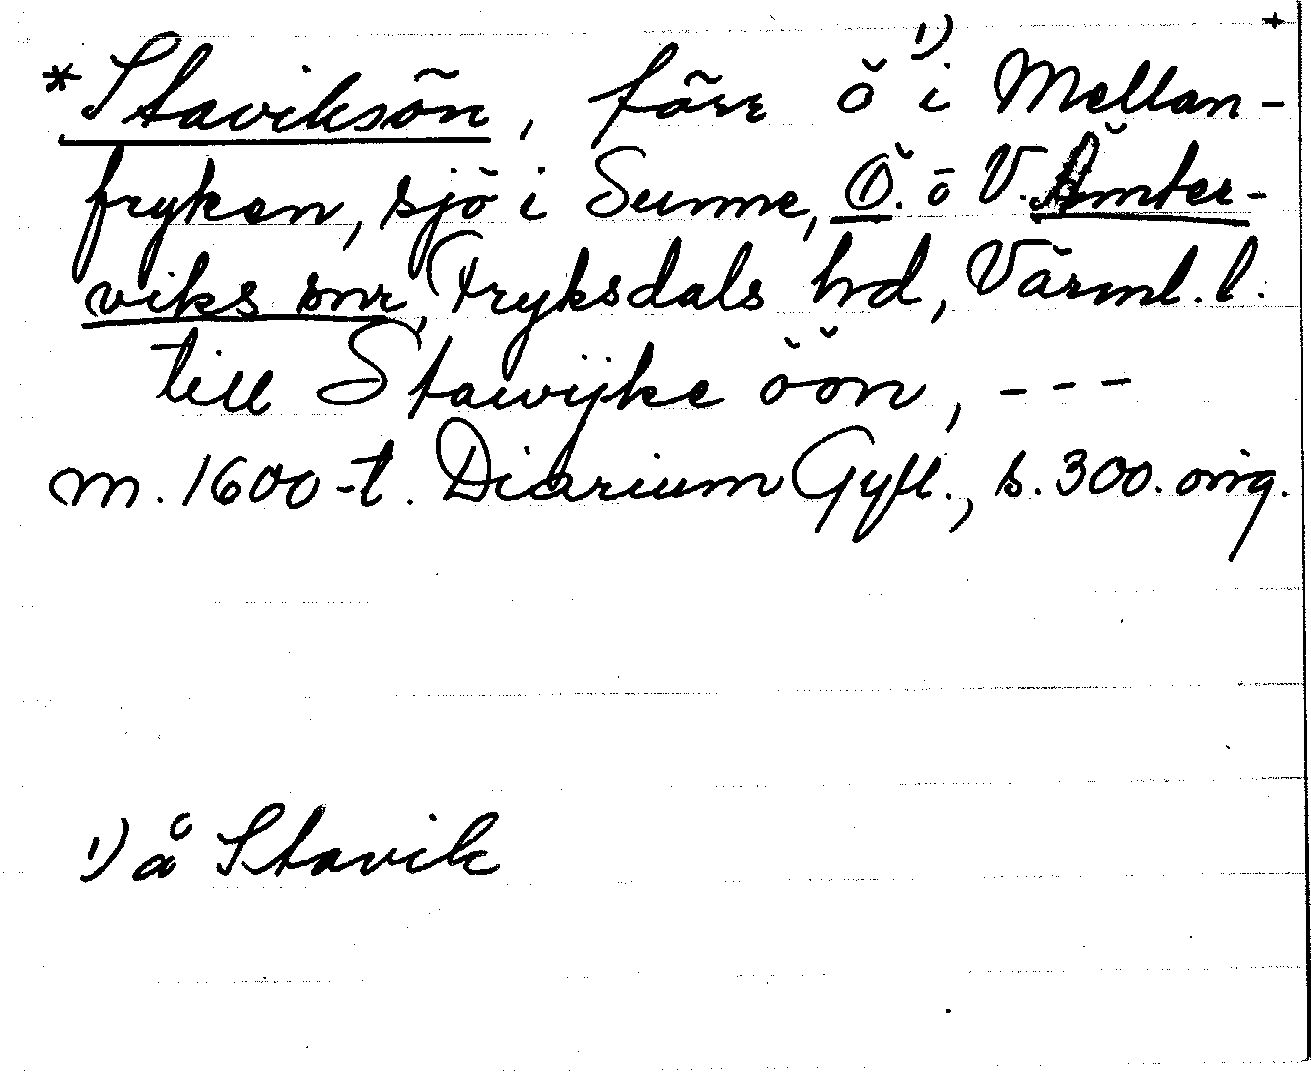 +
*Staviksön, före ö ¹) i Mellan-
fryken, sjö i Sunne, Ö. o V. Ämter-
viks snr, Fryksdals hd, Värml. l.
till Stawijke öön, - - -
m. 1600-t. Diarium Gyll., s. 300. orig.
¹) å Stavik